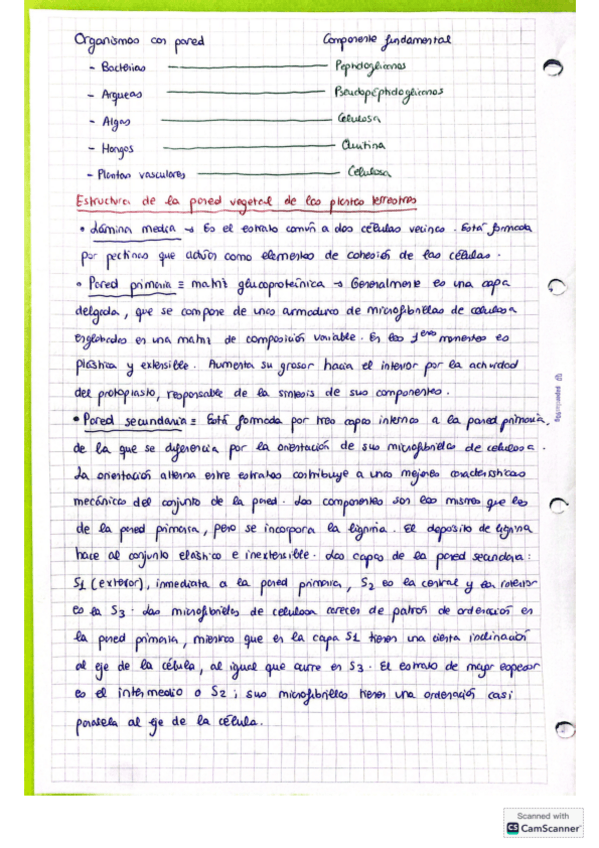 Organismos con pared Componente fundamental
- Bacterias — Peptidoglicanos
- Arqueas — Pseudopéptidoglicanos
- Algas — Celulosa
- Hongos — Quitina
- Plantas vasculares — Celulosa
Estructura de la pared vegetal de las plantas terrestres
• Lámina media → Es el estrato común a dos células vecinas. Está formada
por pectinas que actúan como elementos de cohesión de las células.
• Pared primaria ≡ matriz glucoproteínica → Generalmente es una capa
delgada, que se compone de unas armaduras de microfibrillas de celulosa
englobadas en una matriz de composición variable. En los 1eros momentos es
plástica y extensible. Aumenta su grosor hacia el interior por la actividad
del protoplasto, responsable de la síntesis de sus componentes.
• Pared secundaria ≡ Está formada por tres capas internas a la pared primaria,
de la que se diferencia por la orientación de sus microfibrillas de celulosa.
La orientación alterna entre estratos contribuye a unas mejores características
mecánicas del conjunto de la pared. Los componentes son los mismos que los
de la pared primaria, pero se incorpora la lignina. El depósito de lignina
hace al conjunto elástico e inextensible. Las capas de la pared secundaria:
S1 (exterior), inmediata a la pared primaria, S2 es la central y la interior
es la S3. Las microfibrillas de celulosa carecen de patrón de ordenación en
la pared primaria, mientras que en la capa S1 tienen una cierta inclinación
al eje de la célula, al igual que ocurre en S3. El estrato de mayor espesor
es el intermedio o S2; sus microfibrillas tienen una ordenación casi
paralela al eje de la célula.
Scanned with
CS CamScanner